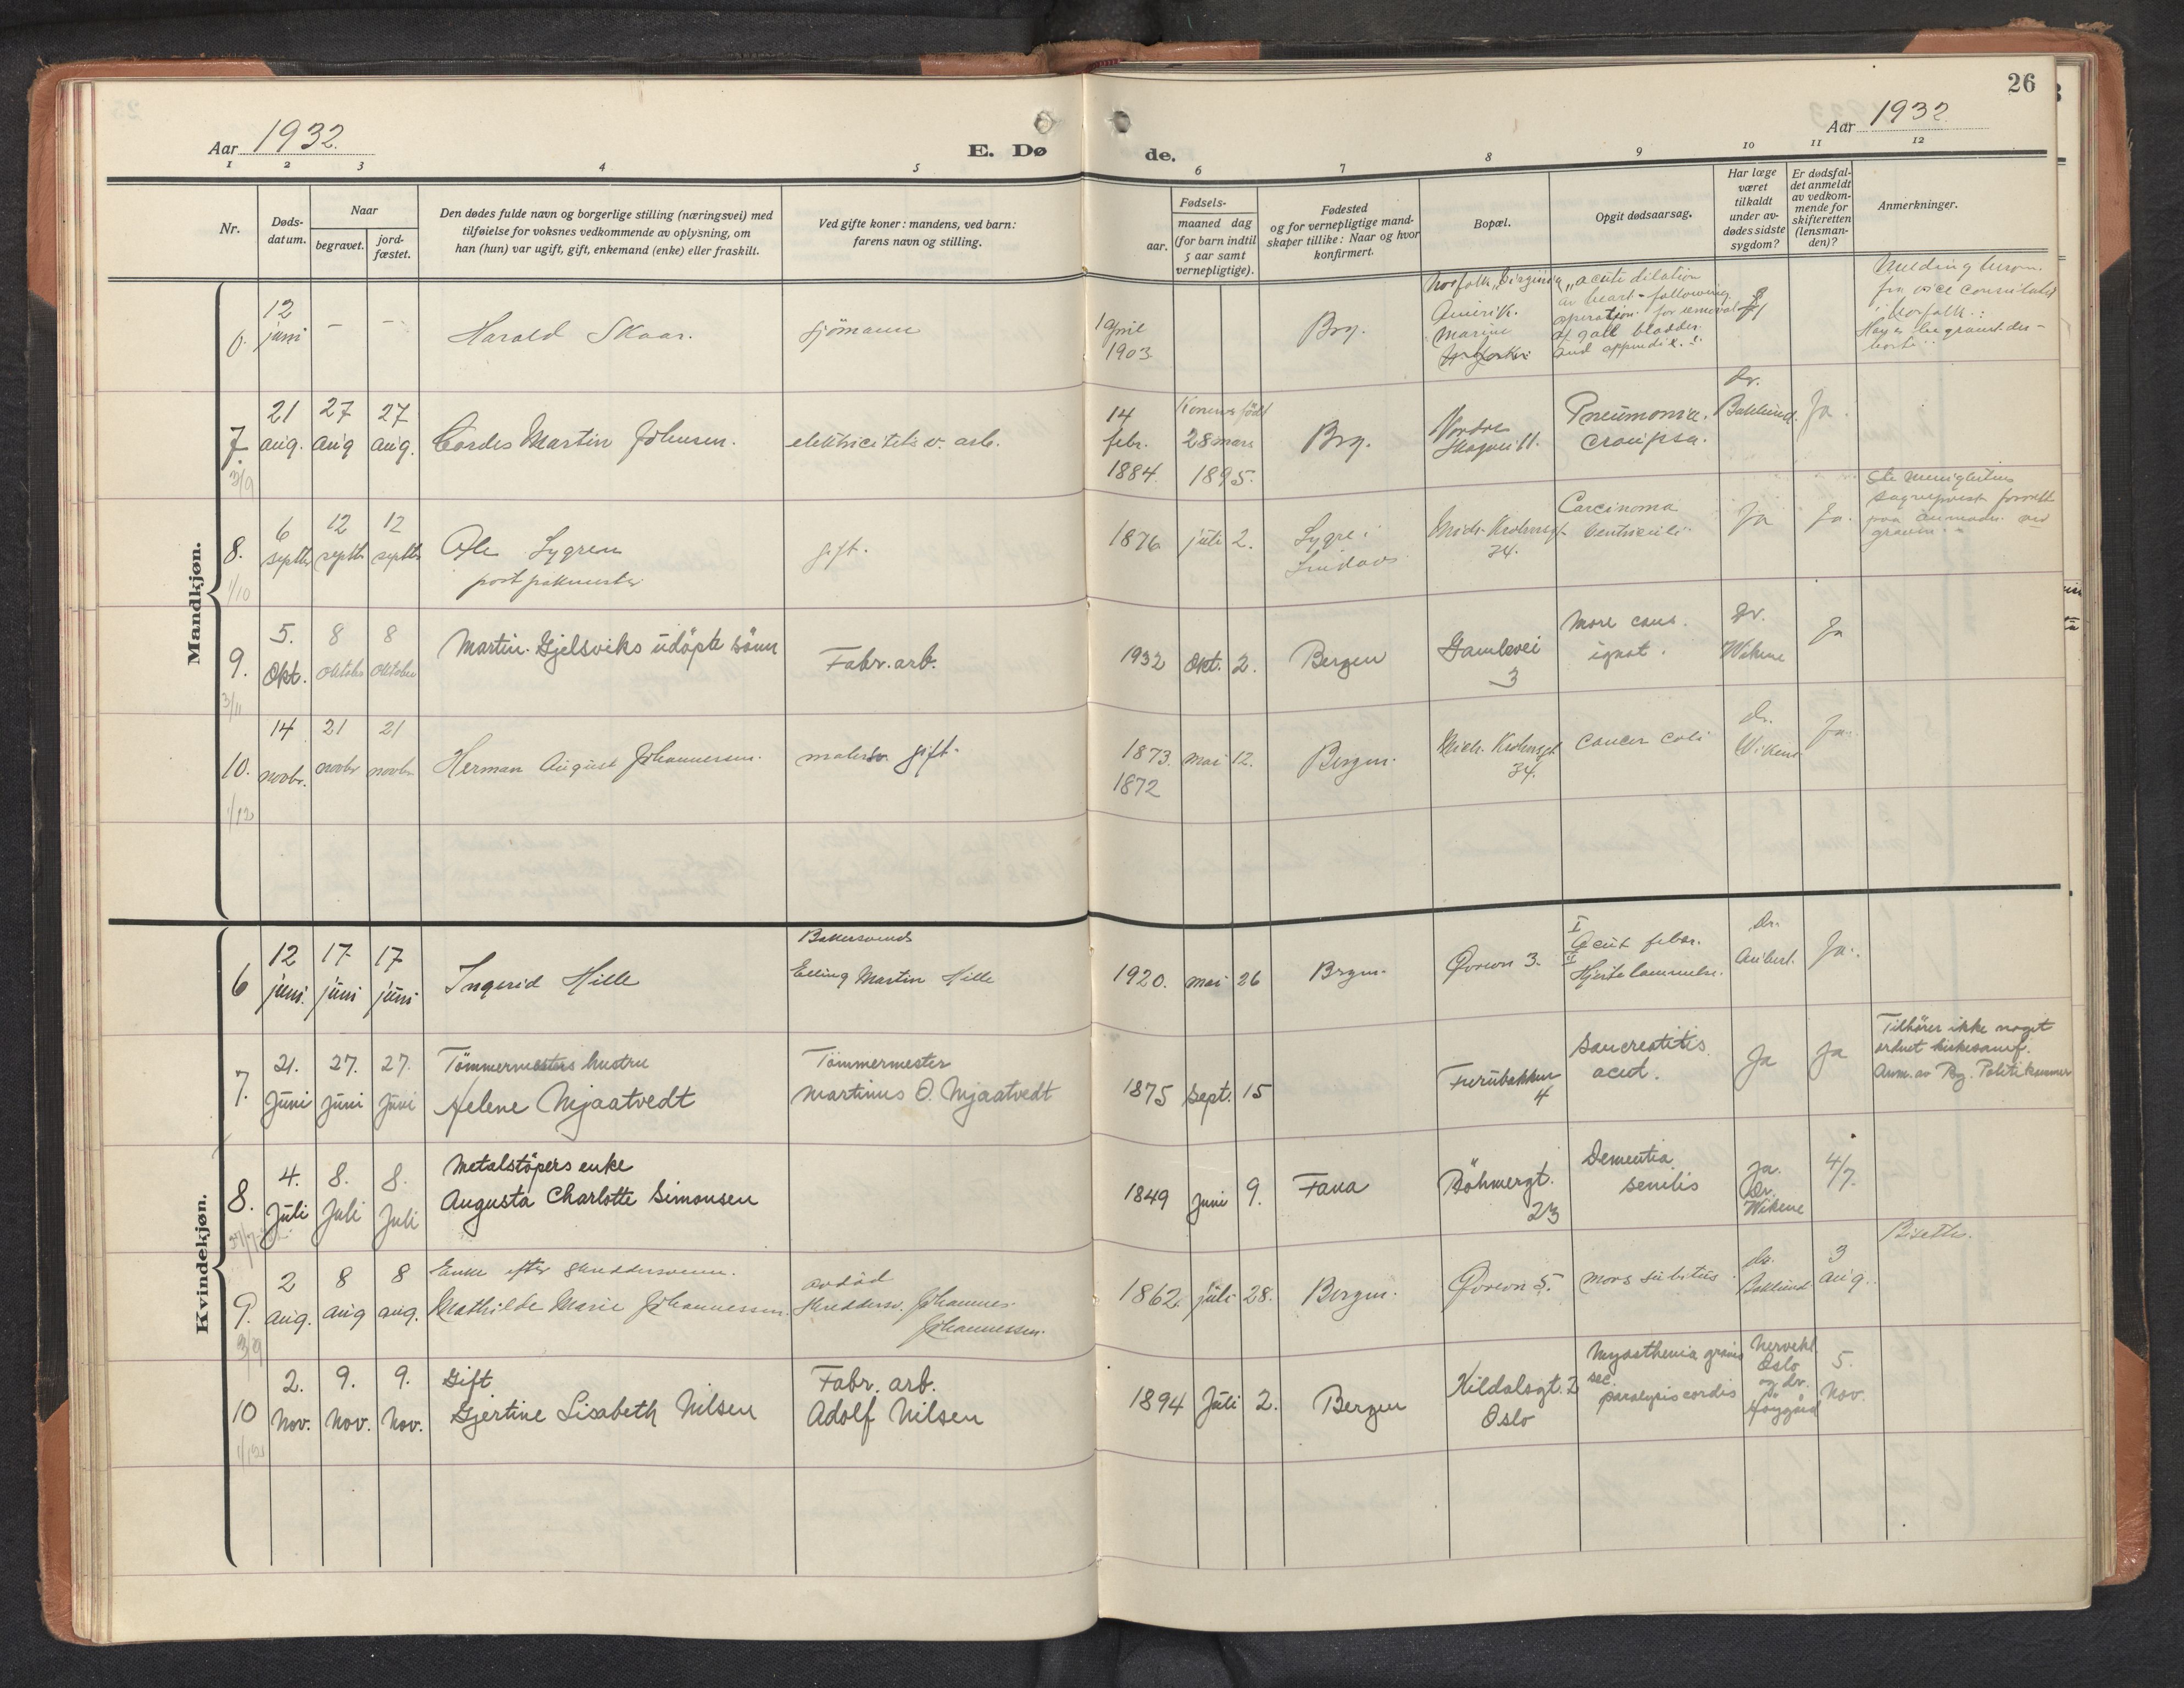 26
Aar 1932.
Aar 1932.
E. Dø
de.
1 2 3 4 5 6 7 8 9 10 11 12
Nr.
Døds-
datum.
Naar
begravet.
jord-
fæstet.
Den dødes fulde navn og borgerlige stilling (næringsvei) med
tilføielse for voksnes vedkommende av oplysning, om
han (hun) var ugift, gift, enkemand (enke) eller fraskilt.
Ved gifte koner: mandens, ved barn:
farens navn og stilling.
Fødsels-
aar.
maaned dag
(for barn indtil
5 aar samt
vernepligtige).
Fødested
og for vernepligtige mand-
skaper tillike: Naar og hvor
konfirmert.
Bopæl.
Opgit dødsaarsag.
Har læge
været
tilkaldt
under av-
dødes sidste
sygdom?
Er dødsfal-
det anmeldt
av vedkom-
mende for
skifteretten
(lensman-
den)?
Anmerkninger.
Mandkjøn.
6.
12
juni
– –
Harald Skaar.
sjömann
1 april
1903
Brg.
Norfolk, Virginia
Amerik.
Marine
"acute dilation
of heart - following
operation for removal
of gall bladder
and appendix."
Melding
fra vice consulatet
i Norfolk:
7.
3/9
21
aug.
27
aug
27
aug.
Cordes Martin Johnsen.
elektricitets v. arb.
14
febr.
1884.
Konens født
28 mars
1895.
Brg.
Nordre
Skogvei 11.
Pneumonia
crouposa.
Dr.
Baklund.
Ja.
8.
1/10
6
septbr
12
septbr
12
septbr
Ole Lygren
postpakmester
gift.
1876
juli 2.
Lygre i
Lindaas
Mich. Krohnsgt.
34.
Carcinoma
ventriculi.
Ja
Ja.
9.
3/11
5.
Okt.
8
Oktober
8
Oktober
Martin Gjelsviks udöpte sönn
Fabr. arb.
1932
Okt. 2.
Bergen
Gamlevei
3
Mors caus.
ignot.
Dr.
Wikene
Ja
10.
1/12
14
novbr.
21
novbr
21
novbr
Herman August Johannessen.
malersv. gift.
1873.
1872
mai 12.
Bergen.
Mich. Krohnsgt.
34.
Cancer coli
Dr.
Wikene
Ja.
Kvindekjøn.
6
12
juni.
17
juni
17
juni
Ingerid Hille
Bakersvend
Elling Martin Hille
1920.
mai 26
Brgn.
Øvreon 3.
I
Acut febr.
II
Hjertelammelse.
Dr.
Ja.
7.
21.
Juni
27.
Juni
27.
Juni
Tömmermesters hustru
Helene Mjaatvedt
Tömmermester
Martinus O. Mjaatvedt
1875
Sept. 15
Furubakken
4
Pancreatitis
acut.
Ja
Ja
Tilhörer ikke noget
ordnet kirkesamf.
Anm. av Bg. Politikammer
8.
4.
Juli
8.
Juli
8.
Juli
Metalstöpers enke
Augusta Charlotte Simonsen
1849
Juni 9.
Fana
Böhmergt.
23
Dementia
senilis
Ja.
Dr.
Wikene
4/7.
9.
3/9
2
aug.
8
aug
8
aug.
Enke efter skreddersvenn.
Mathilde Marie Johannessen.
avdöd
Skreddersv. Johannes
Johannessen.
1862.
juli 28.
Bergen.
Øvreon 5.
mors subitus.
Dr.
Baklund
3
aug.
Bisettes.
10
1/12
2.
Nov.
9.
Nov.
9.
Nov.
Gift
Gjertine Lisabeth Nilsen
Fabr. arb.
Adolf Nilsen
1894
Juli 2.
Bergen
Kildalsgt. 2
Oslo
Myasthenia gravis
sec.
paralysis cordis
Nervekl.
Oslo
og dr.
5.
Nov.